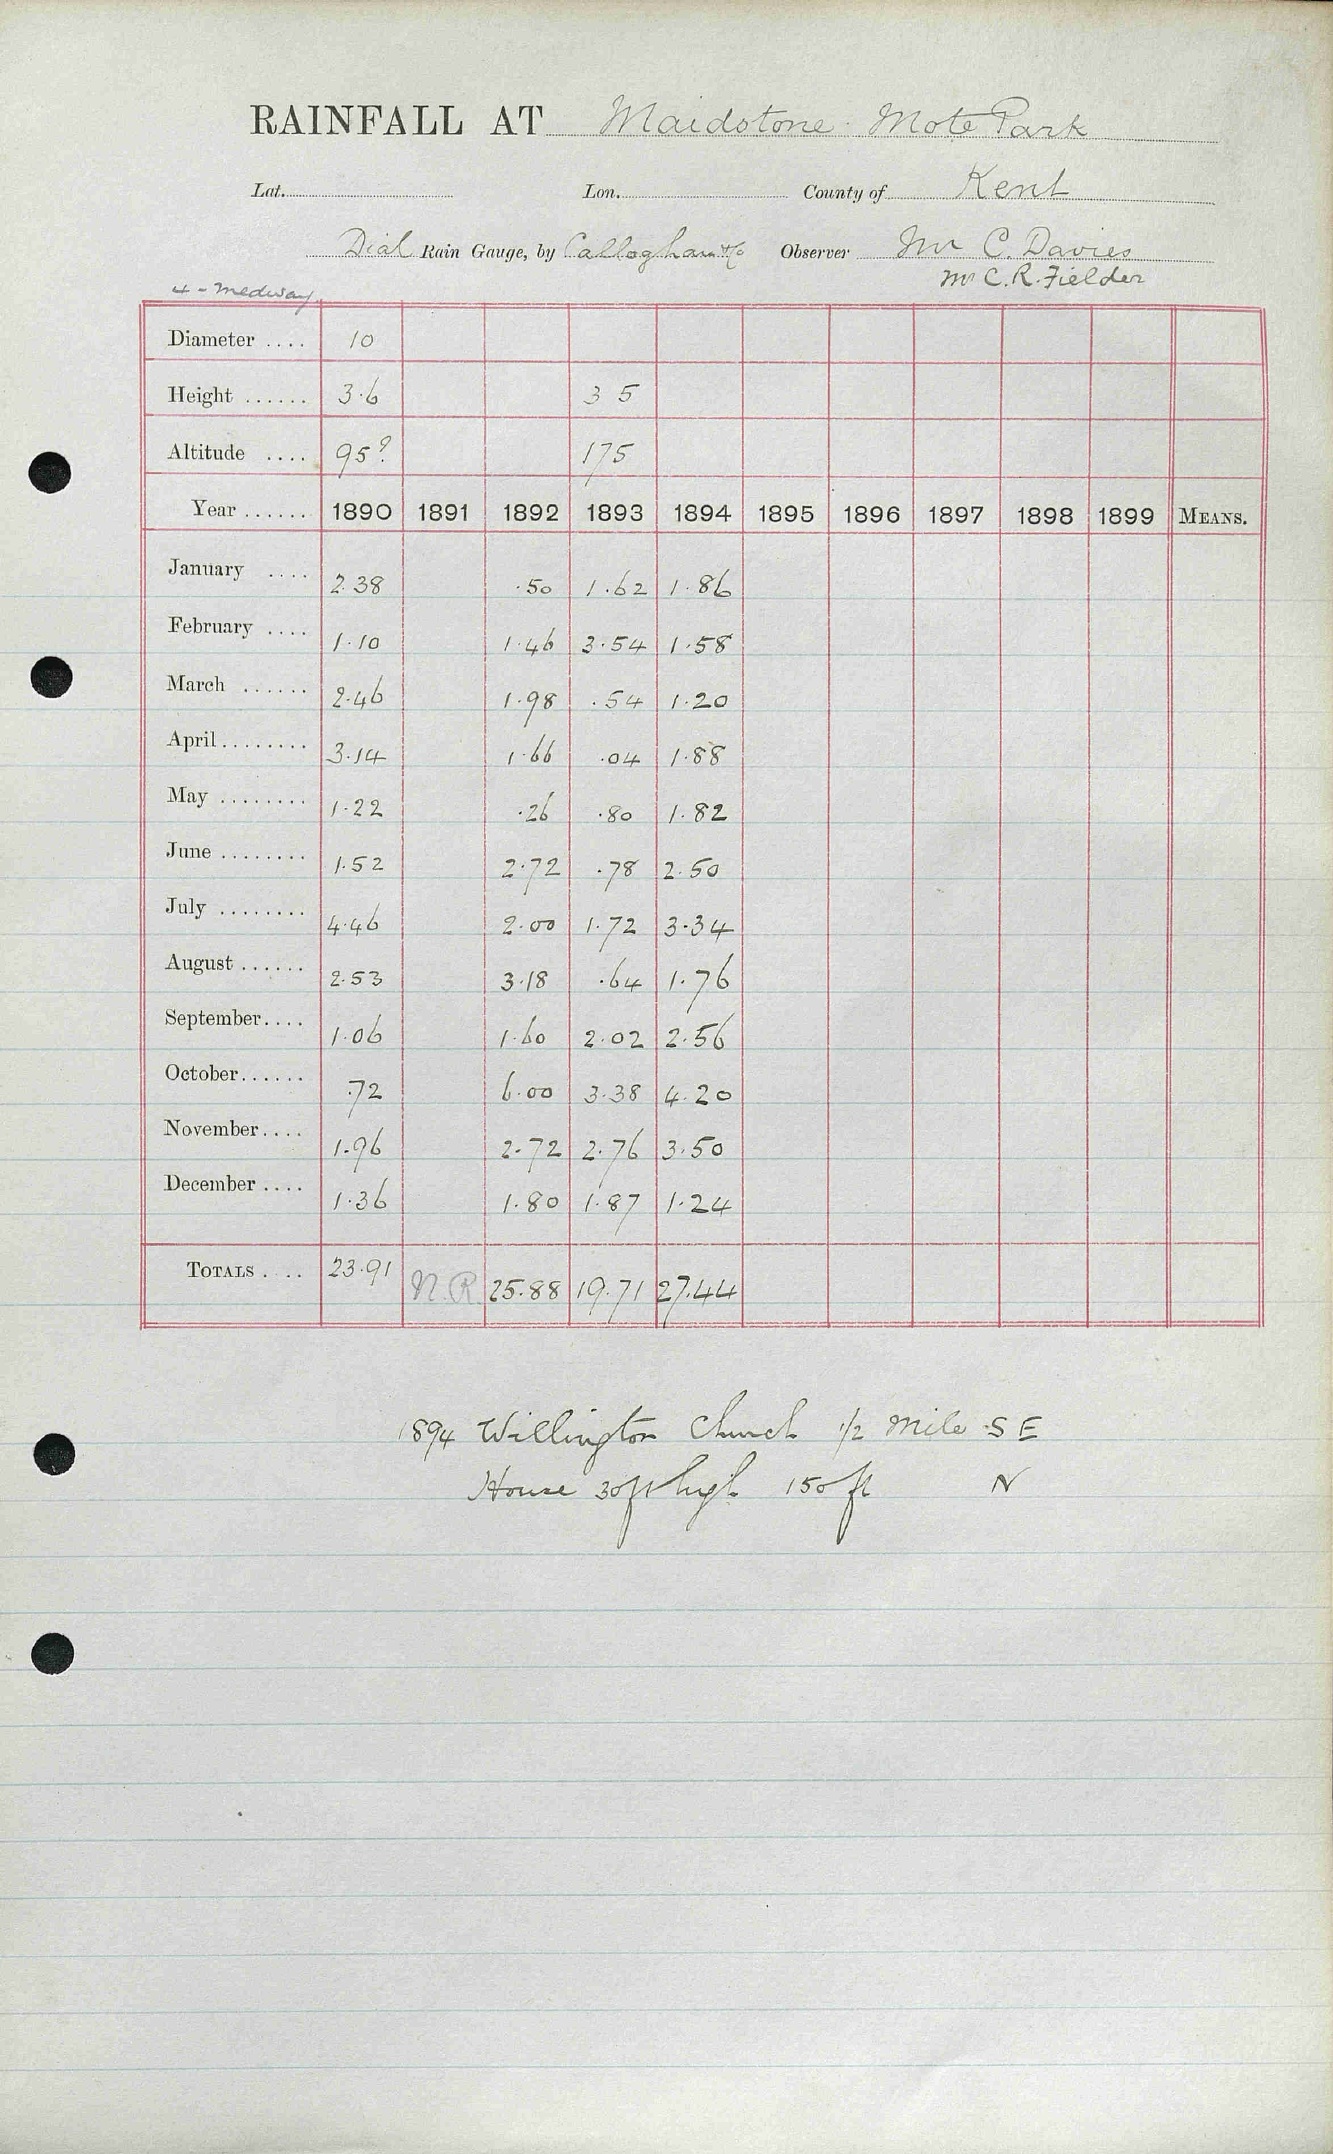 RAINFALL AT Maidstone Mote Park
Lat. Lon. County of Kent
Dial Rain Gauge, by Callaghan & Co Observer Mr C. Davies
Mr C. R. Fielder
4 - Medway
Diameter .... 10
Height ...... 3.6 3 5
Altitude .... 95? 175
Year ...... 1890 1891 1892 1893 1894 1895 1896 1897 1898 1899 MEANS.
January .... 2.38 .50 1.62 1.86
February .... 1.10 1.46 3.54 1.58
March ...... 2.46 1.98 .54 1.20
April........ 3.14 1.66 .04 1.88
May ........ 1.22 .26 .80 1.82
June ........ 1.52 2.72 .78 2.50
July ........ 4.46 2.00 1.72 3.34
August ...... 2.53 3.18 .64 1.76
September.... 1.06 1.60 2.02 2.56
October...... .72 6.00 3.38 4.20
November.... 1.96 2.72 2.76 3.50
December .... 1.36 1.80 1.87 1.24
TOTALS .... 23.91 N.R. 25.88 19.71 27.44
1894 Willington Church 1/2 Mile S E
House 30ft high 150 ft N